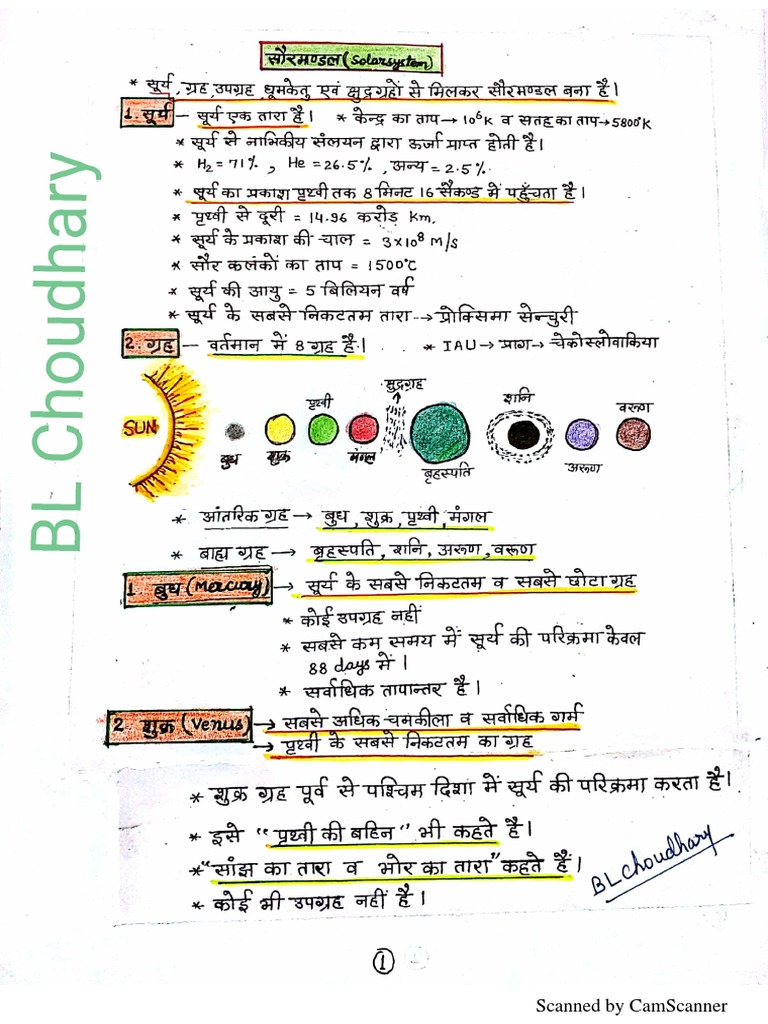 सौरमण्डल (Solarsystem)
* सूर्य, ग्रह, उपग्रह, धूमकेतु एवं क्षुद्रग्रहों से मिलकर सौरमण्डल बना है।
1. सूर्य – सूर्य एक तारा है। * केन्द्र का ताप → 10⁶K व सतह का ताप → 5800°K
* सूर्य से नाभिकीय संलयन द्वारा ऊर्जा प्राप्त होती है।
* H₂ = 71%, He = 26.5%, अन्य = 2.5%
* सूर्य का प्रकाश पृथ्वी तक 8 मिनट 16 सैकण्ड में पहुँचता है।
* पृथ्वी से दूरी = 14.96 करोड़ Km.
* सूर्य के प्रकाश की चाल = 3×10⁸ M/S
* सौर कलंकों का ताप = 1500°C
* सूर्य की आयु = 5 बिलियन वर्ष
* सूर्य के सबसे निकटतम तारा → प्रोक्सिमा सेन्चुरी
2. ग्रह – वर्तमान में 8 ग्रह है। * IAU → प्राग → चेकोस्लोवाकिया
SUN
बुध
शुक्र
पृथ्वी
मंगल
क्षुद्रग्रह
बृहस्पति
शनि
अरूण
वरूण
* आंतरिक ग्रह → बुध, शुक्र, पृथ्वी, मंगल
* बाह्य ग्रह → बृहस्पति, शनि, अरूण, वरूण
1. बुध (Mercury) → सूर्य के सबसे निकटतम व सबसे छोटा ग्रह
* कोई उपग्रह नहीं
* सबसे कम समय में सूर्य की परिक्रमा केवल
88 days में।
* सर्वाधिक तापान्तर है।
2. शुक्र (Venus) → सबसे अधिक चमकीला व सर्वाधिक गर्म
→ पृथ्वी के सबसे निकटतम का ग्रह
* शुक्र ग्रह पूर्व से पश्चिम दिशा में सूर्य की परिक्रमा करता है।
* इसे "पृथ्वी की बहिन" भी कहते है।
* "सांझ का तारा व भोर का तारा" कहते है।
* कोई भी उपग्रह नहीं है।
BL Choudhary
BL Choudhary
1
Scanned by CamScanner